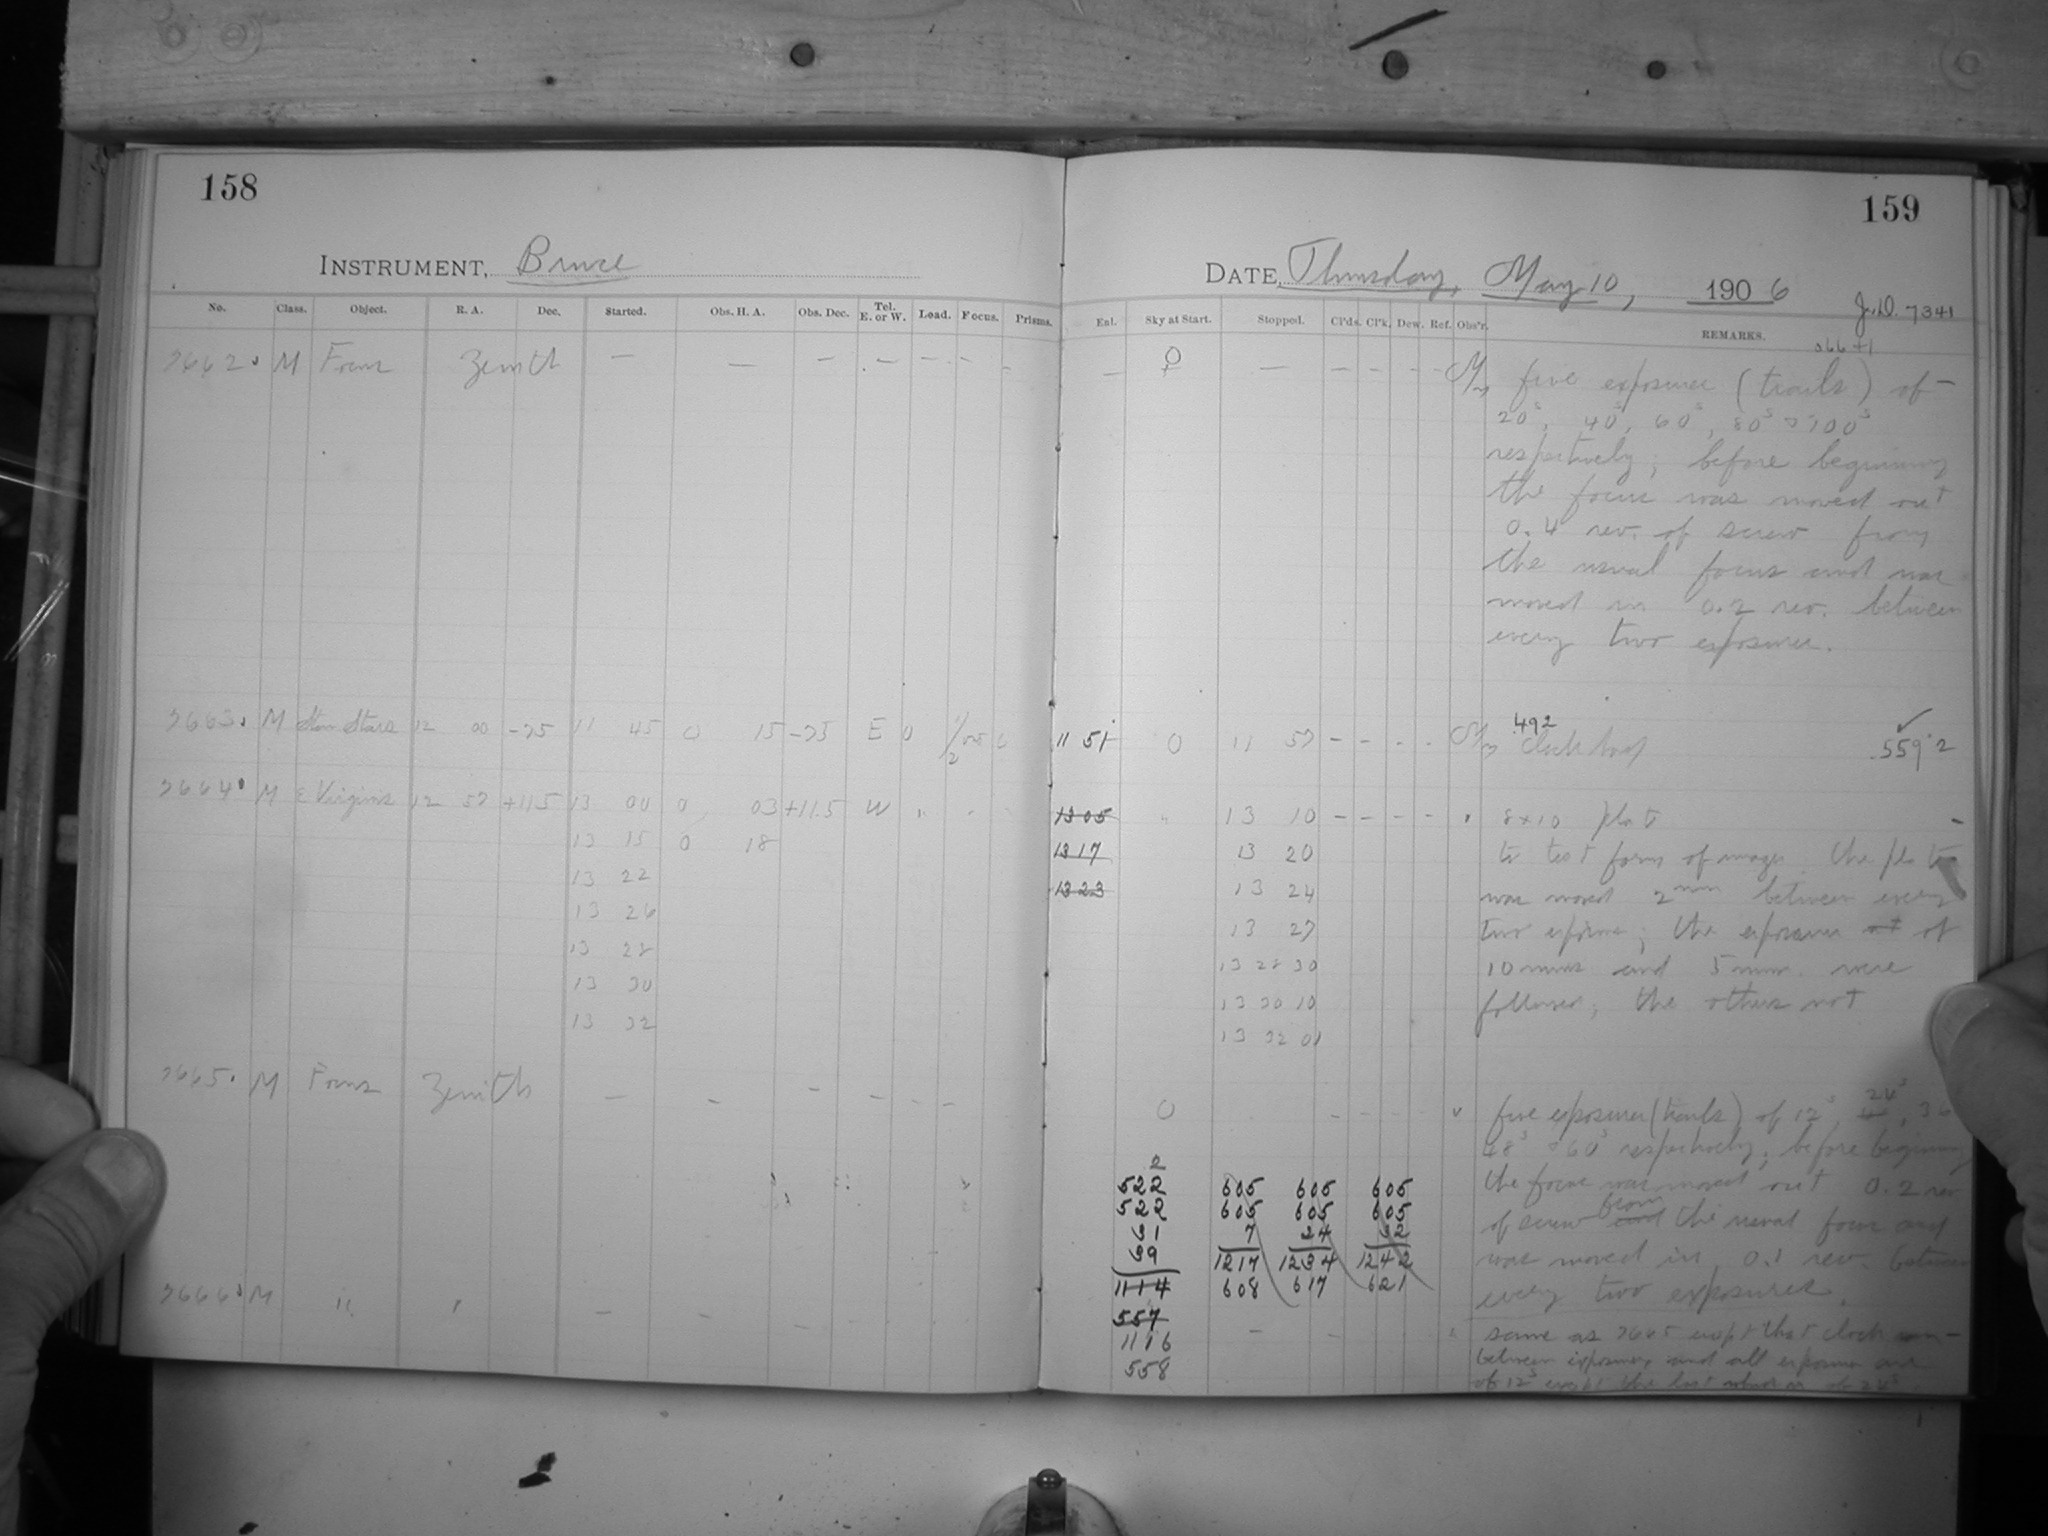 158
INSTRUMENT, Bruce
No. Class. Object. R. A. Dec. Started. Obs. H. A. Obs. Dec. Tel. E. or W. Load. Focus. Prisms.
7662. M Focus Zenith — — — — — — —
7663. M Stan Stars 12 00 -75 11 45 0 15 -75 E 0
7664. M ε Virginis 12 57 +11.5 13 00 0 03 +11.5 W " " "
13 15 0 18
13 22
13 26
13 28
13 30
13 32
7665. M Focus Zenith — — — — — —
7666. M " " — — — — — —
159
DATE, Thursday, May 10, 1906
J.D. 7341
Enl. Sky at Start. Stopped. Cl'ds. Cl'k. Dew. Ref. Obs'r. REMARKS.
066+1
five exposures (trails) of —
20s, 40s, 60s, 80s & 100s
respectively; before beginning
the focus was moved out
0.4 rev. of screw from
the usual focus and was
moved in 0.2 rev. between
every two exposures.
492
11 51 0 11 57 - - - - 559.2
1305 " 13 10 - - - - " 8x10 plate —
1317 13 20 to test form of images. the plate
1323 13 24 was moved 2mm between every
13 27 two exposures; the exposures of
13 28 30 10 mins and 5 min. were
13 30 10 followed, the others not
13 32 01
0 - - - - " five exposures (trails) of 12s, 24s, 36
48s & 60s respectively; before beginning
the focus was moved out 0.2 rev
of screw from the usual focus and
was moved in 0.1 rev. between
every two exposures.
same as 7665 except that clock ran
between exposures and all exposures are
of 12s except the last which is of 24s
2
522 605 605 605
522 605 605 605
31 7 24 32
39 1217 1234 1242
1114 608 617 621
557
1116
558